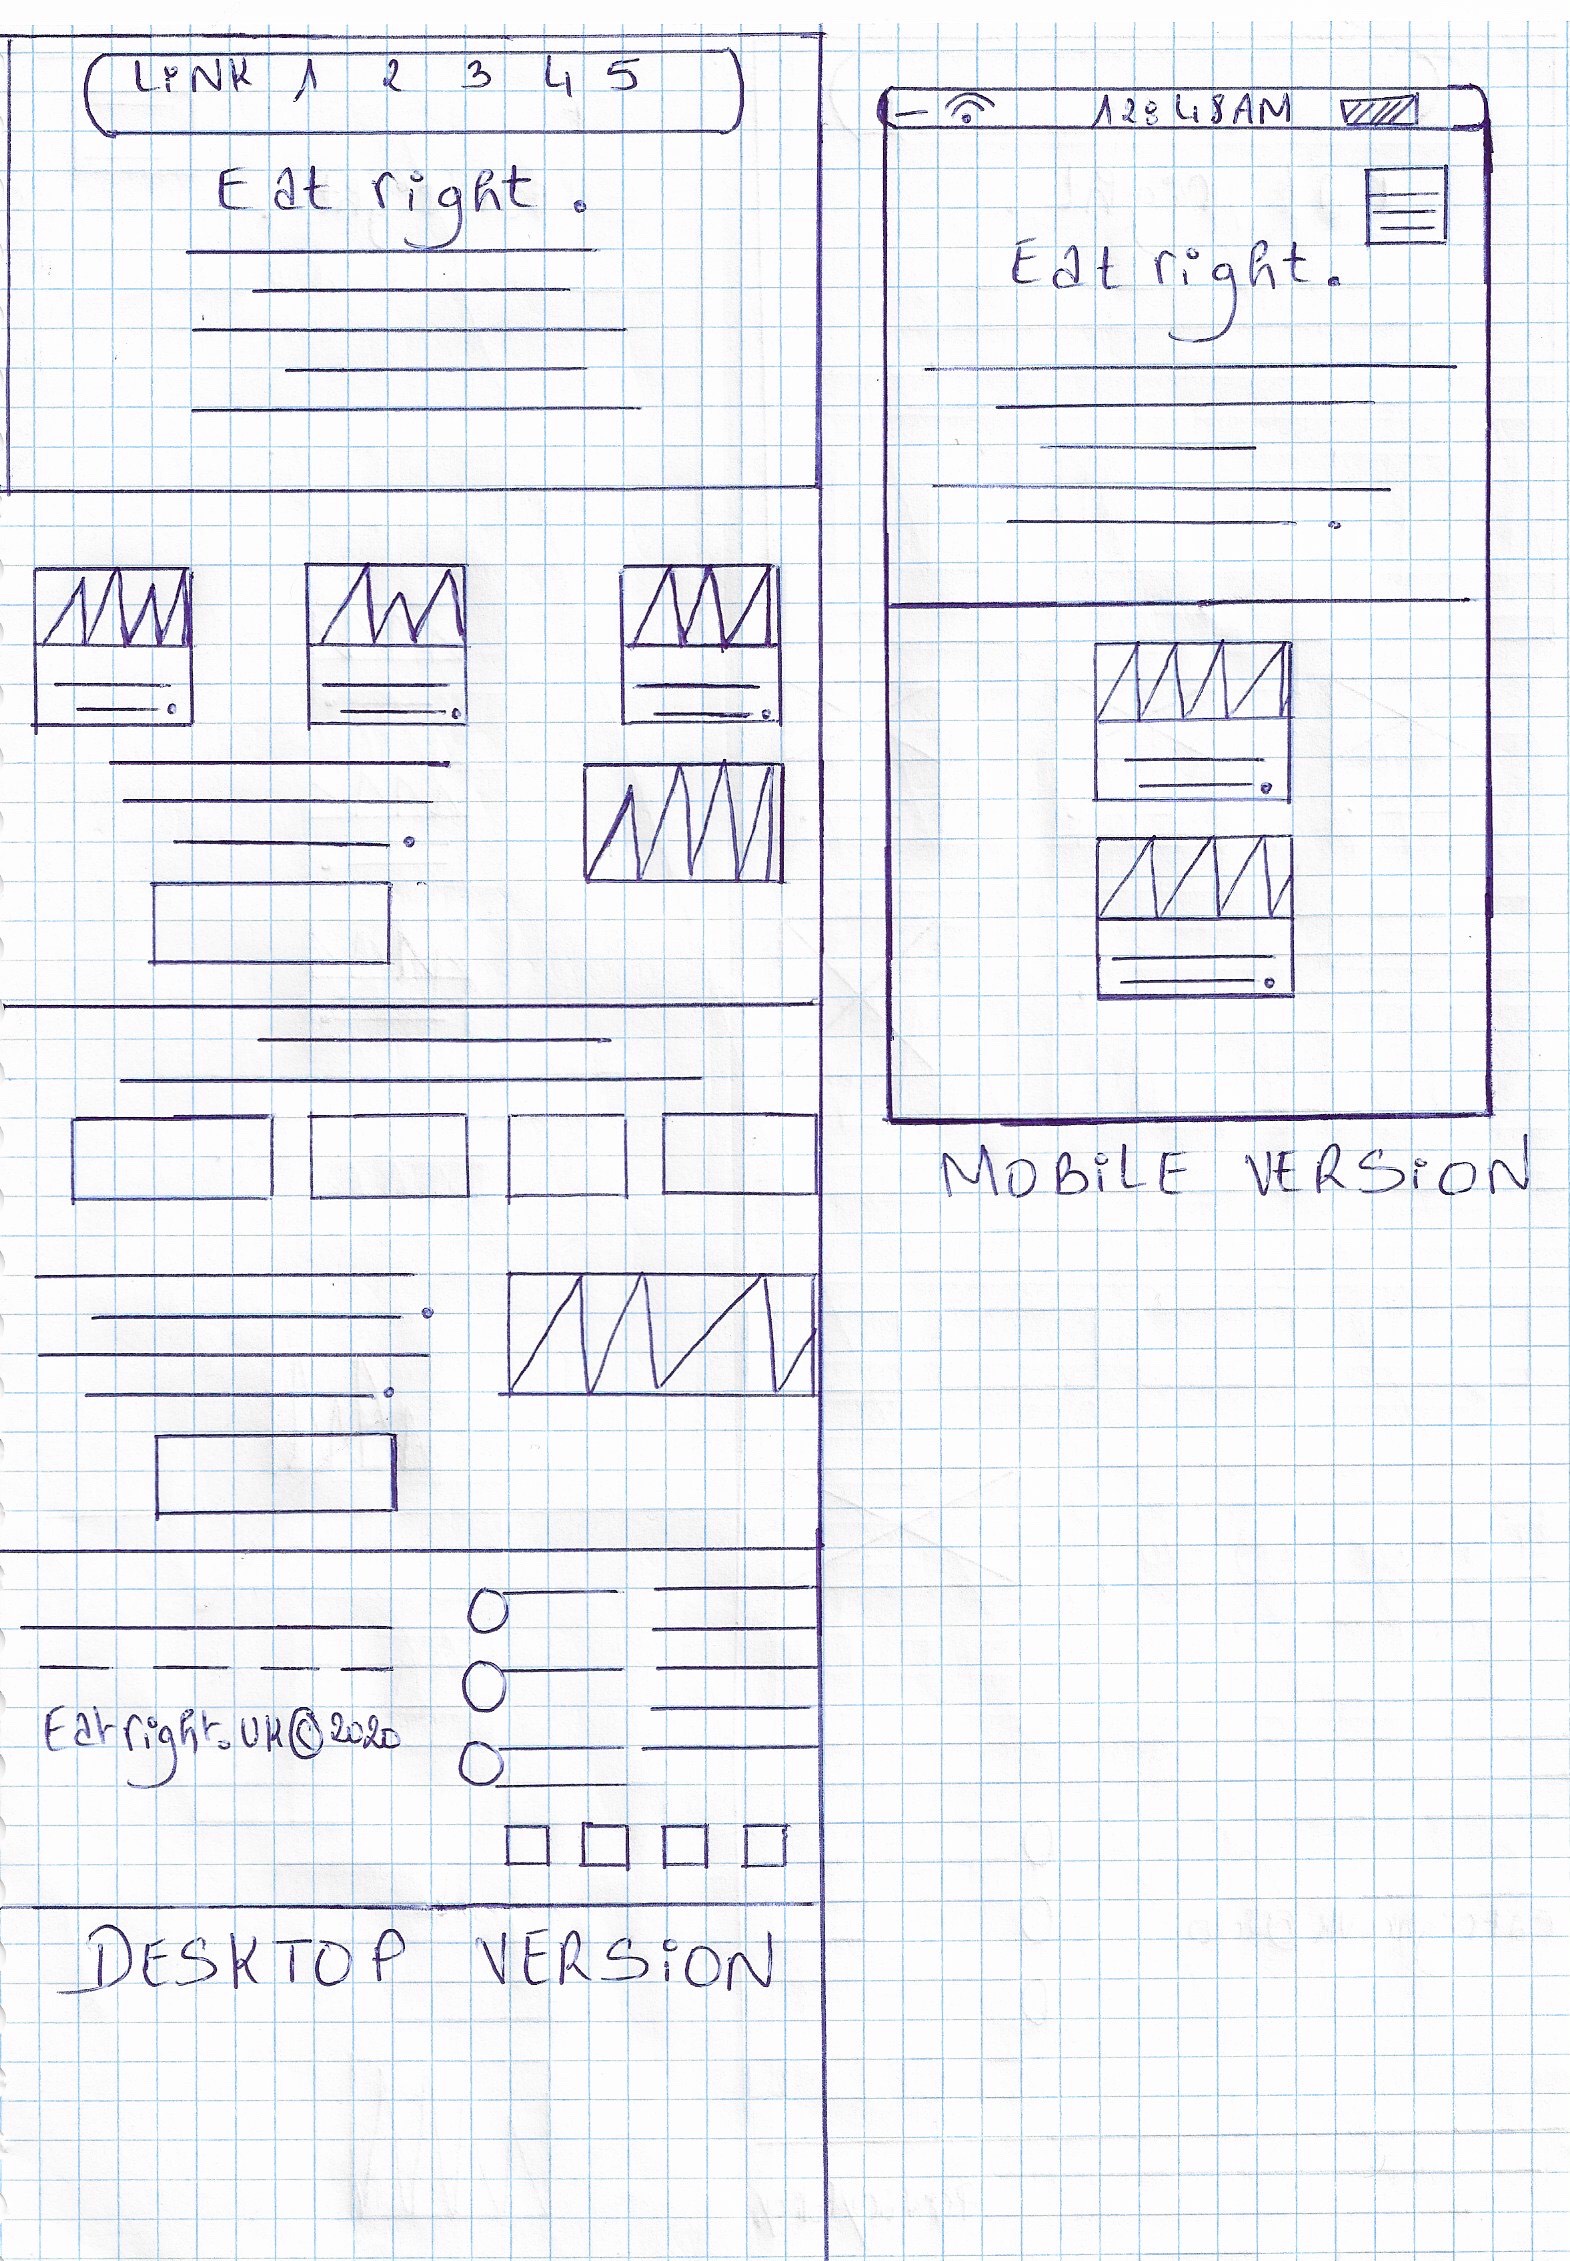 LiNK 1 2 3 4 5
Eat right.
Eatright.UK©2020
DESKTOP VERSiON
12:48AM
Eat right.
MOBiLE VERSiON